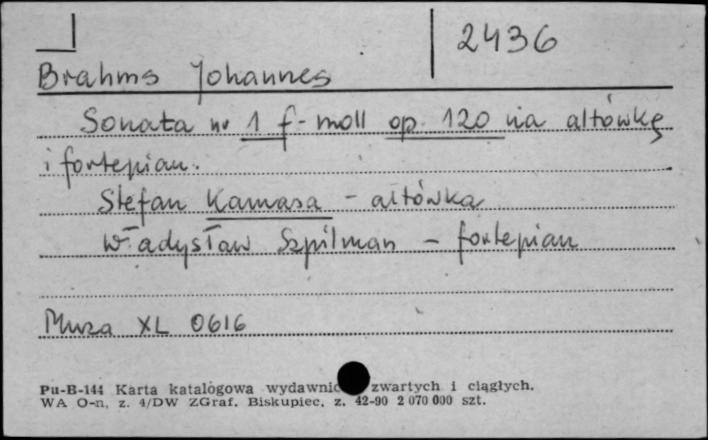 2436
Brahms Johannes
Sonata nr 1 f-moll op. 120 na altówkę
i fortepian.
Stefan Kamasa - altówka
Władysław Szpilman - fortepian
Muza XL 0616
Pu-B-144 Karta katalogowa wydawnic zwartych i ciągłych.
WA O-n, z. 4/DW ZGraf. Biskupiec, z. 42-90 2 070 000 szt.